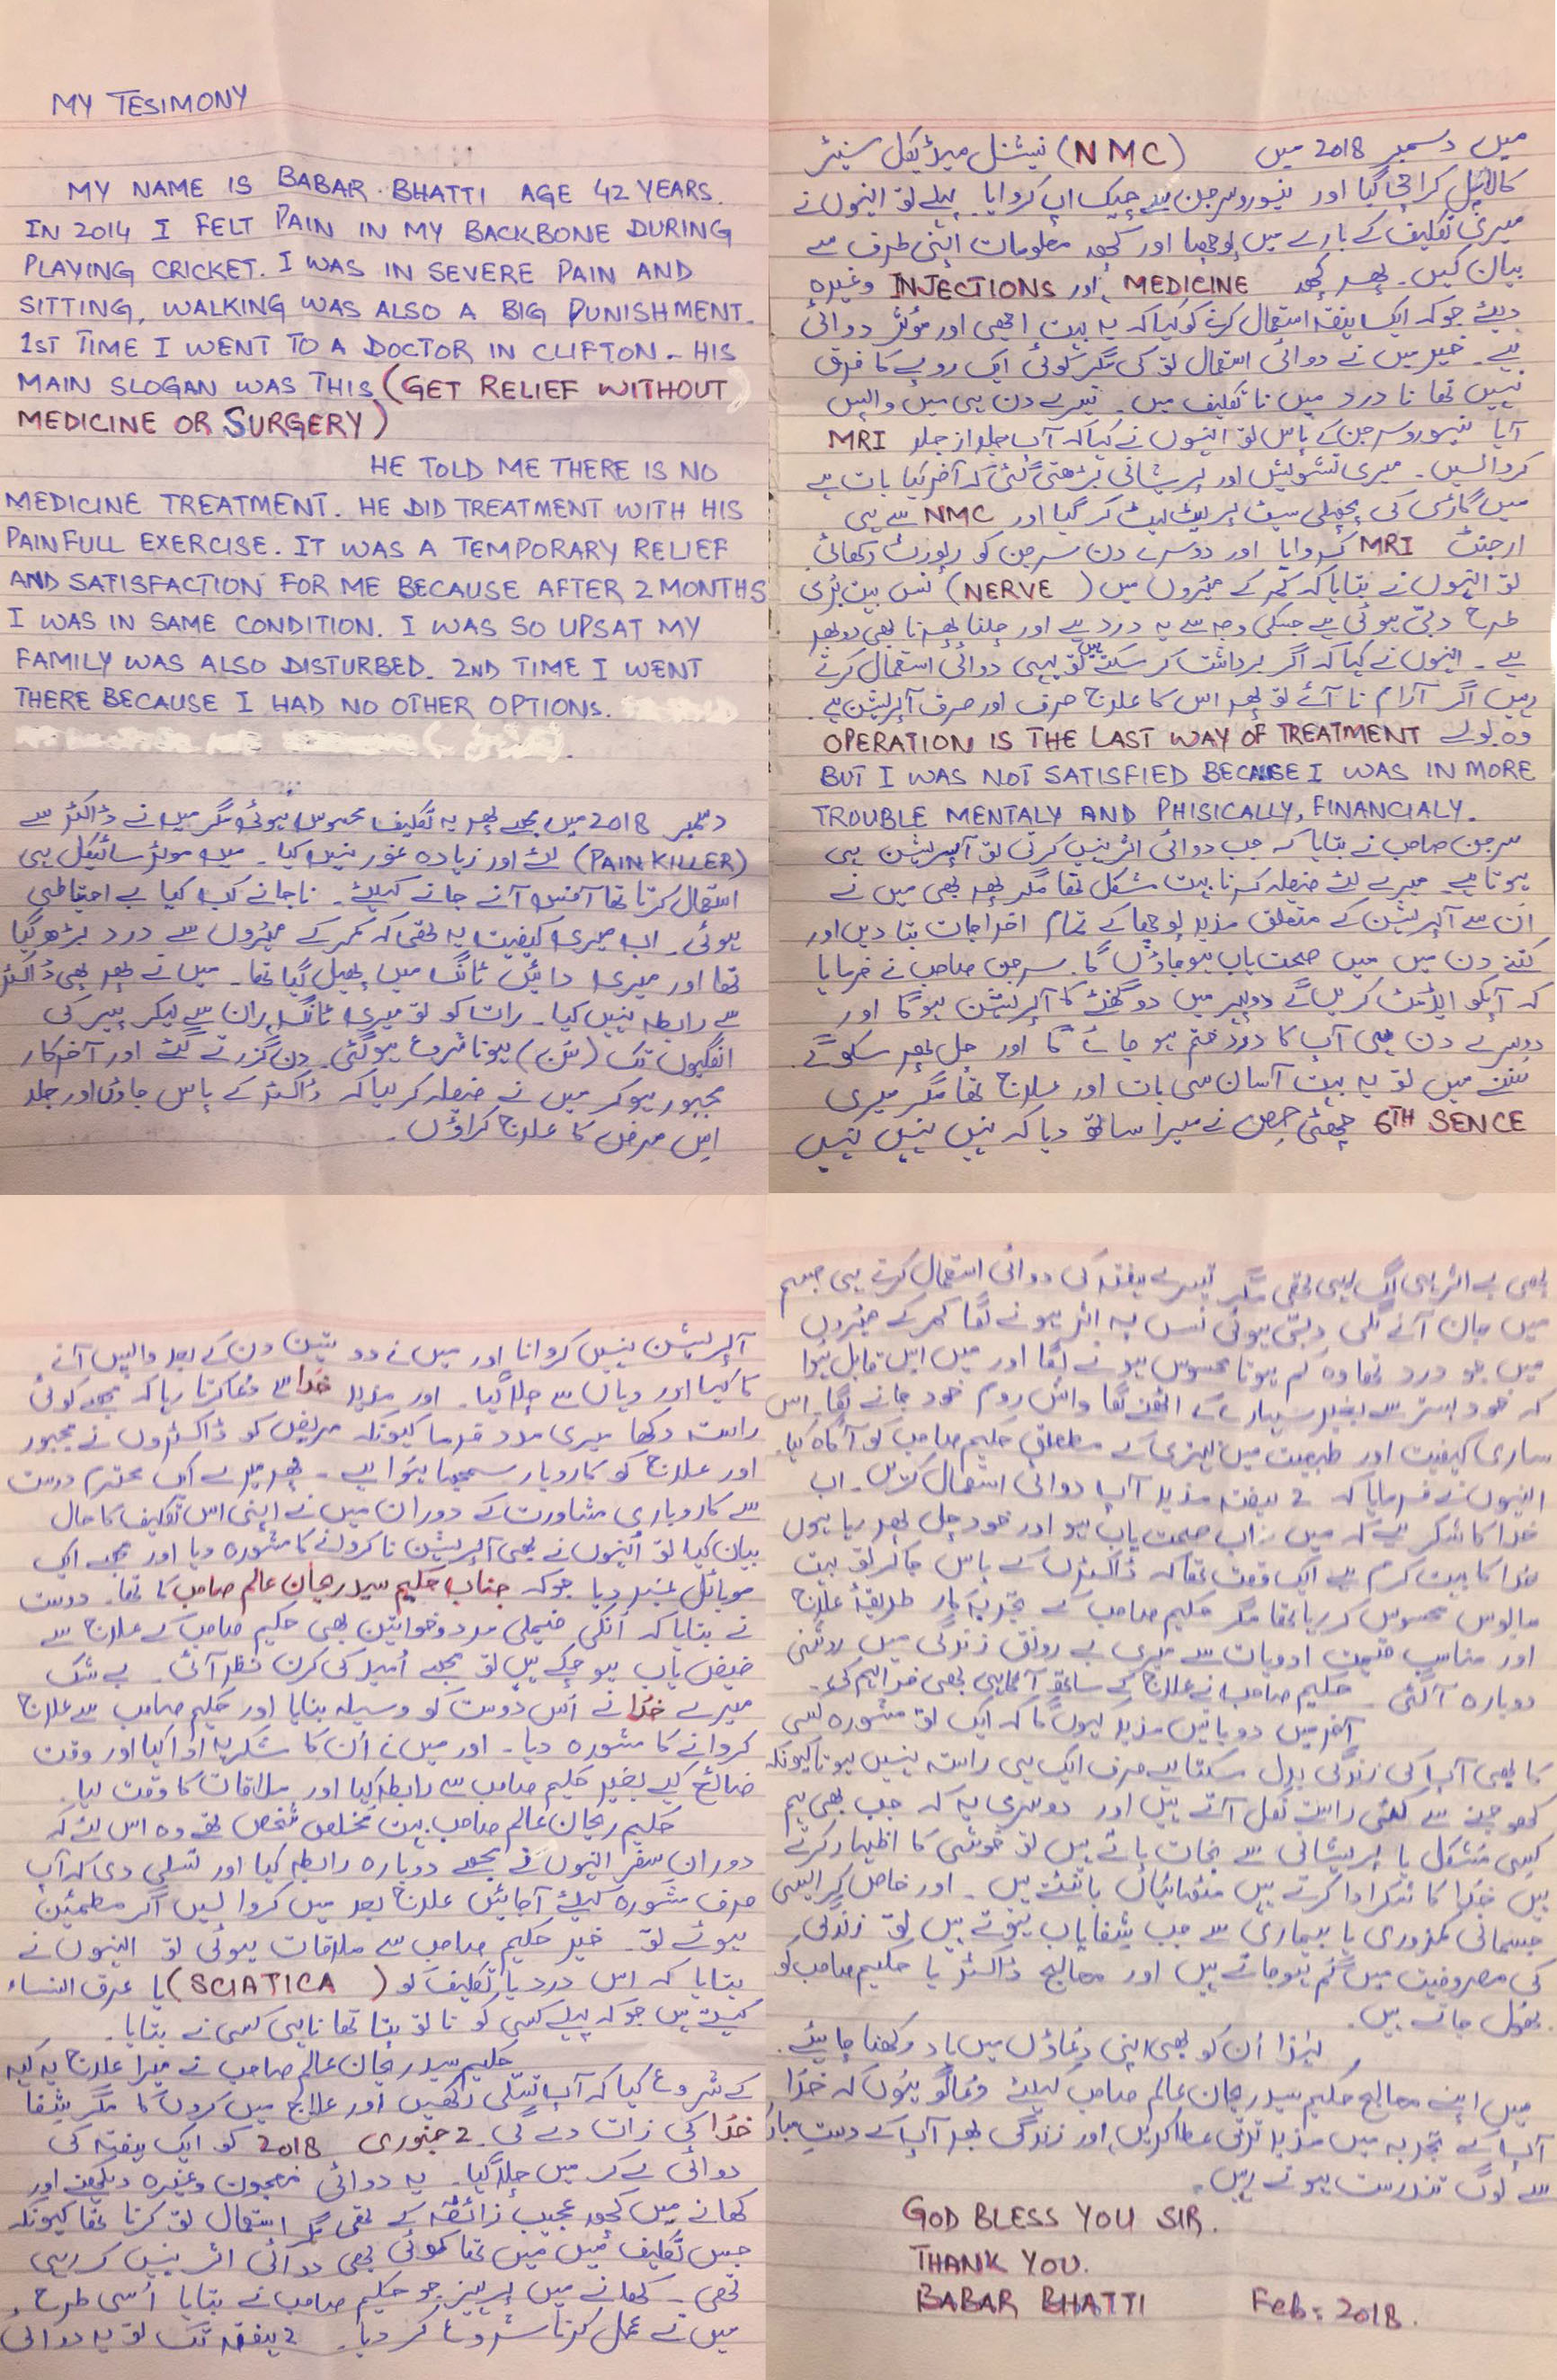 MY TESIMONY
MY NAME IS BABAR BHATTI AGE 42 YEARS.
IN 2014 I FELT PAIN IN MY BACKBONE DURING
PLAYING CRICKET. I WAS IN SEVERE PAIN AND
SITTING, WALKING WAS ALSO A BIG PUNISHMENT.
1ST TIME I WENT TO A DOCTOR IN CLIFTON - HIS
MAIN SLOGAN WAS THIS (GET RELIEF WITHOUT
MEDICINE OR SURGERY)
HE TOLD ME THERE IS NO
MEDICINE TREATMENT. HE DID TREATMENT WITH HIS
PAINFULL EXERCISE. IT WAS A TEMPORARY RELIEF
AND SATISFACTION FOR ME BECAUSE AFTER 2 MONTHS
I WAS IN SAME CONDITION. I WAS SO UPSAT MY
FAMILY WAS ALSO DISTURBED. 2ND TIME I WENT
THERE BECAUSE I HAD NO OTHER OPTIONS.
دسمبر 2018 میں مجھے پھر یہ تکلیف محسوس ہوئی مگر میں نے ڈاکٹر سے
(PAIN KILLER) لئے اور زیادہ غور نہیں کیا۔ میں موٹر سائیکل ہی
استعمال کرتا تھا آفس آنے جانے کیلئے۔ ناجانے کب کیا بے احتیاطی
ہوئی۔ اب میری کیفیت یہ تھی کہ کمر کے مہروں سے درد بڑھ گیا
تھا اور میری دائیں ٹانگ میں پھیل گیا تھا۔ میں نے پھر بھی ڈاکٹر
سے رابطہ نہیں کیا۔ رات کو تو میری ٹانگ ران سے لیکر پیر کی
انگلیوں تک (سُن) ہونا شروع ہوگئی۔ دن گزرتے گئے اور آخرکار
مجبور ہوکر میں نے فیصلہ کرلیا کہ ڈاکٹر کے پاس جاؤں اور جلد
اِس مرض کا علاج کراؤں۔
میں دسمبر 2018 میں (NMC) نیشنل میڈیکل سینٹر
کالاپل کراچی گیا اور نیوروسرجن سے چیک اپ کروایا۔ پہلے تو انہوں نے
میری تکلیف کے بارے میں پوچھا اور کچھ معلومات اپنی طرف سے
بیان کیں۔ پھر کچھ MEDICINE اور INJECTIONS وغیرہ
دیئے جوکہ ایک ہفتہ استعمال کرنے کو کہا کہ یہ بہت اچھی اور مؤثر دوائی
ہے۔ خیر میں نے دوائی استعمال تو کی مگر کوئی ایک روپے کا فرق
نہیں تھا نا درد میں نا تکلیف میں۔ تیسرے دن ہی میں واپس
آیا نیوروسرجن کے پاس تو انہوں نے کہا کہ آپ جلد از جلد MRI
کروالیں۔ میری تشویش اور پریشانی بڑھتی گئی کہ آخر کیا بات ہے
میں گاڑی کی پچھلی سیٹ پر لیٹ لیٹ کر گیا اور NMC سے ہی
ارجنٹ MRI کروایا اور دوسرے دن سرجن کو رپورٹ دکھائی
تو انہوں نے بتایا کہ کمر کے مہروں میں (NERVE) نس بہت بُری
طرح دبی ہوئی ہے جسکی وجہ سے یہ درد ہے اور چلنا پھرنا بھی دوبھر
ہے۔ انہوں نے کہا کہ اگر برداشت کر سکتے ہیں تو یہی دوائی استعمال کرتے
رہیں اگر آرام نا آئے تو پھر اس کا علاج صرف اور صرف آپریشن ہے۔
وہ بولے OPERATION IS THE LAST WAY OF TREATMENT
BUT I WAS NOT SATISFIED BECAUSE I WAS IN MORE
TROUBLE MENTALY AND PHISICALLY, FINANCIALY.
سرجن صاحب نے بتایا کہ جب دوائی اثر نہیں کرتی تو آپریشن ہی
ہوتا ہے۔ میرے لئے فیصلہ کرنا بہت مشکل تھا مگر پھر بھی میں نے
اُن سے آپریشن کے متعلق مزید پوچھا کے تمام اخراجات بتا دیں اور
کتنے دن میں میں صحت یاب ہوجاؤں گا۔ سرجن صاحب نے فرمایا
کہ آپکو ایڈمٹ کریں گے دوپہر میں دو گھنٹے کا آپریشن ہوگا اور
دوسرے دن ہی آپ کا درد ختم ہو جائے گا اور چل پھر سکو گے۔
سننے میں تو یہ بہت آسان سی بات اور علاج تھا مگر میری
6TH SENCE چھٹی حِس نے میرا ساتھ دیا کہ نہیں نہیں نہیں
آپریشن نہیں کروانا اور میں نے دو تین دن کے بعد واپس آنے
کا کہا اور وہاں سے چلا گیا۔ اور مزید خُدا سے دُعا کرتا رہا کہ مجھے کوئی
راستہ دکھا میری مدد فرما کیونکہ مریض کو ڈاکٹروں نے مجبور
اور علاج کو کاروبار سمجھا ہوا ہے۔ پھر میرے ایک محترم دوست
سے کاروباری مشاورت کے دوران میں نے اپنی اس تکلیف کا حال
بیان کیا تو اُنہوں نے بھی آپریشن نا کروانے کا مشورہ دیا اور مجھے ایک
موبائل نمبر دیا جوکہ جناب حکیم سید ریحان عالم صاحب کا تھا۔ دوست
نے بتایا کہ اُنکی فیملی مرد و خواتین بھی حکیم صاحب کے علاج سے
فیض یاب ہو چکے ہیں تو مجھے اُمید کی کرن نظر آئی۔ بے شک
میرے خُدا نے اُس دوست کو وسیلہ بنایا اور حکیم صاحب سے علاج
کروانے کا مشورہ دیا۔ اور میں نے اُن کا شکریہ ادا کیا اور وقت
ضائع کیے بغیر حکیم صاحب سے رابطہ کیا اور ملاقات کا وقت لیا۔
حکیم ریحان عالم صاحب بہت مخلص شخص تھے وہ اس لئے کہ
دوران سفر انہوں نے مجھے دوبارہ رابطہ کیا اور تسلی دی کہ آپ
صرف مشورہ کیلئے آجائیں علاج بعد میں کروا لیں اگر مطمئین
ہوئے تو۔ خیر حکیم صاحب سے ملاقات ہوئی تو انہوں نے
بتایا کہ اس درد یا تکلیف کو (SCIATICA) یا عرق النساء
کہتے ہیں جو کہ پہلے کسی کو نا تو پتا تھا نا ہی کسی نے بتایا۔
حکیم سید ریحان عالم صاحب نے میرا علاج یہ کہہ
کے شروع کیا کہ آپ تسلی رکھیں اور علاج میں کروں گا مگر شفا
خُدا کی ذات دے گی۔ 2 جنوری 2018 کو ایک ہفتہ کی
دوائی لے کر میں چلا گیا۔ یہ دوائی معجون وغیرہ دیکھنے اور
کھانے میں کچھ عجیب ذائقہ کے تھی مگر استعمال تو کرنا تھا کیونکہ
جس تکلیف میں میں تھا کوئی بھی دوائی اثر نہیں کر رہی
تھی۔ کھانے میں پرہیز جو حکیم صاحب نے بتایا اُسی طرح
میں نے عمل کرنا شروع کر دیا۔ 2 ہفتہ تک تو یہ دوائی
بھی بے اثر ہی لگ رہی تھی مگر تیسرے ہفتہ کی دوائی استعمال کرتے ہی جسم
میں جان آنے لگی دبی ہوئی نس پہ اثر ہونے لگا کمر کے مہروں
میں جو درد تھا وہ کم ہوتا محسوس ہونے لگا اور میں اس قابل ہوا
کہ خود بستر سے بغیر سہارے کے اٹھنے لگا واش روم خود جانے لگا۔ اس
ساری کیفیت اور طبیعت میں بہتری کے مطعلق حکیم صاحب کو آگاہ کیا۔
انہوں نے فرمایا کہ 2 ہفتہ مزید آپ دوائی استعمال کریں۔ اب
خدا کا شکر ہے کہ میں اب صحت یاب ہوں اور خود چل پھر رہا ہوں
خدا کا بہت کرم ہے ایک وقت تھا کہ ڈاکٹروں کے پاس جاکر تو بہت
مایوس محسوس کر رہا تھا مگر حکیم صاحب کے تجربہ کار طریقۂ علاج
اور مناسب قیمت ادویات سے میری بے رونق زندگی میں روشنی
دوبارہ آگئی۔ حکیم صاحب نے علاج کے ساتھ آگاہی بھی فراہم کی۔
آخر میں دو باتیں مزید کہوں گا کہ ایک تو مشورہ کسی
کا بھی آپ کی زندگی بدل سکتا ہے صرف ایک ہی راستہ نہیں ہوتا کیونکہ
کھوجنے سے کئی راستے نکل آتے ہیں اور دوسری یہ کہ جب بھی ہم
کسی مشکل یا پریشانی سے نجات پاتے ہیں تو خوشی کا اظہار کرتے
ہیں خُدا کا شکر ادا کرتے ہیں مٹھائیاں بانٹتے ہیں۔ اور خاص کر ایسی
جسمانی کمزوری یا بیماری سے جب شفایاب ہوتے ہیں تو زندگی
کی مصروفیت میں گم ہوجاتے ہیں اور معالج ڈاکٹر یا حکیم صاحب کو
بھول جاتے ہیں۔
لہٰذا اُن کو بھی اپنی دُعاؤں میں یاد رکھنا چاہیئے۔
میں اپنے معالج حکیم سید ریحان عالم صاحب کیلئے دُعاگو ہوں کہ خُدا
آپ کے تجربہ میں مزید ترقی عطا کریں اور زندگی بھر آپ کے دستِ مبارک
سے لوگ تندرست ہوتے رہیں۔
GOD BLESS YOU SIR.
THANK YOU.
BABAR BHATTI Feb: 2018.